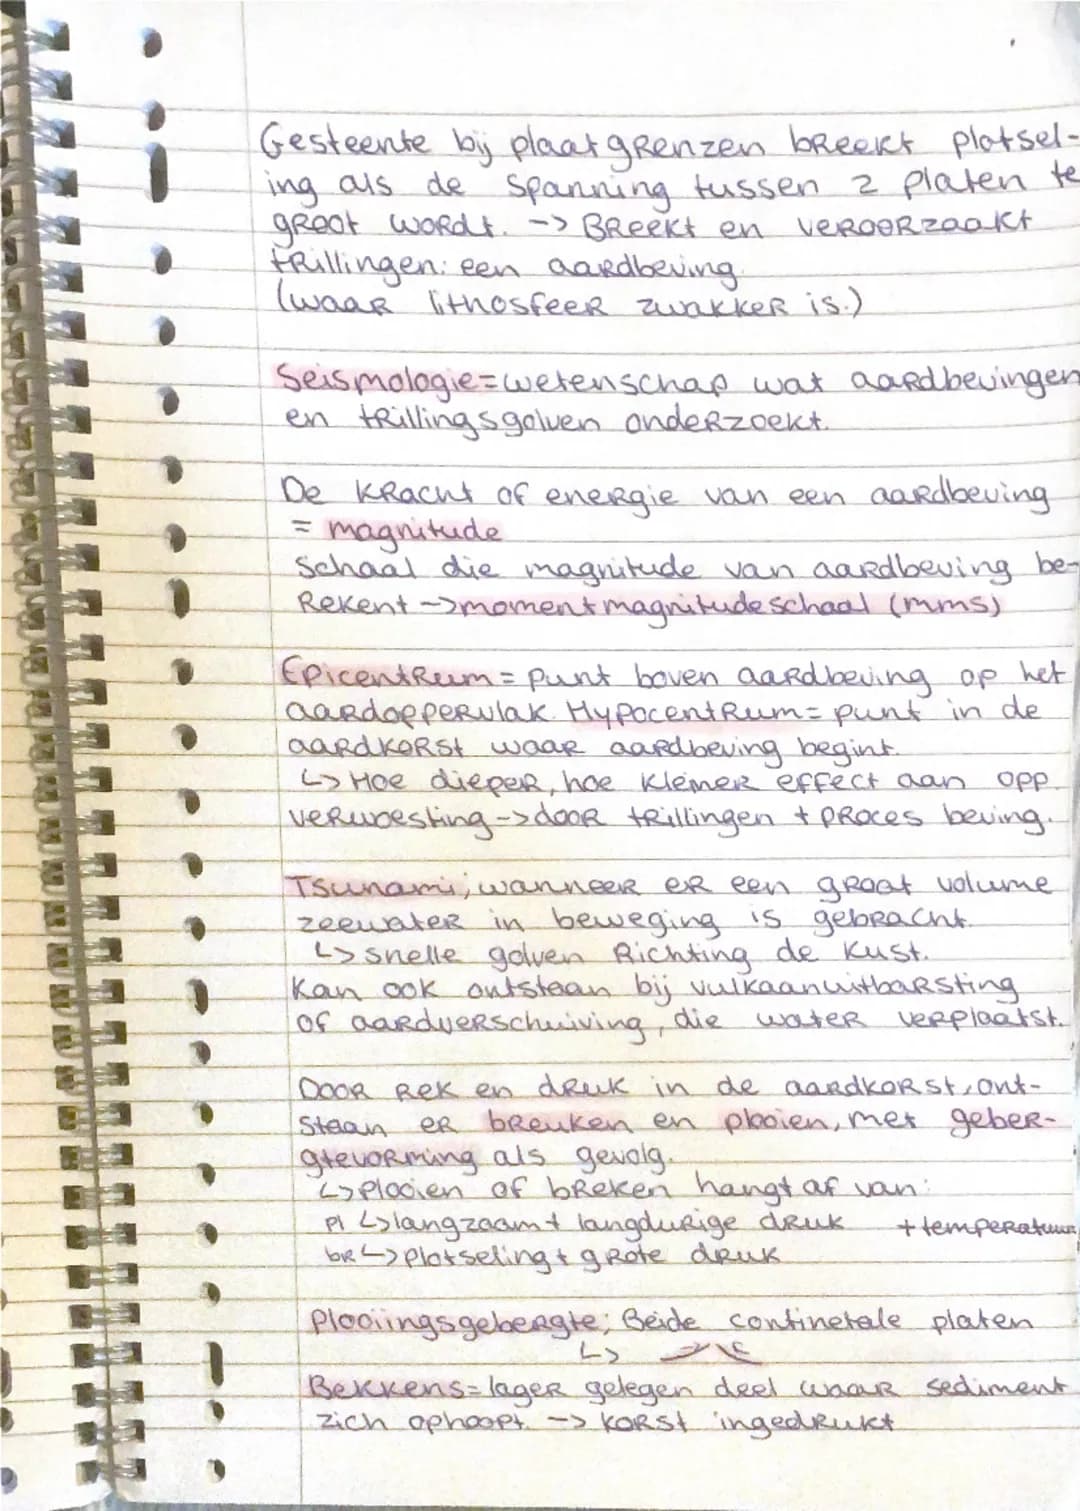 Gesteente bij plaatgrenzen breekt plotsel-
ing als de spanning tussen 2 platen te
groot wordt. -> Breekt en veroorzaakt
trillingen: een aardbeving.
(waar lithosfeer zwakker is.)
Seismologie = wetenschap wat aardbevingen
en trillingsgolven onderzoekt.
De kracht of energie van een aardbeving
= magnitude
Schaal die magnitude van aardbeving be-
rekent -> momentmagnitudeschaal (mms)
Epicentrum = punt boven aardbeving op het
aardoppervlak. Hypocentrum = punt in de
aardkorst waar aardbeving begint.
↳ Hoe dieper, hoe kleiner effect aan opp.
verwoesting -> door trillingen + proces beving.
Tsunami; wanneer er een groot volume
zeewater in beweging is gebracht.
↳ snelle golven richting de kust.
Kan ook ontstaan bij vulkaanuitbarsting
of aardverschuiving, die water verplaatst.
Door rek en druk in de aardkorst, ont-
staan er breuken en plooien, met geber-
gtevorming als gevolg.
↳ Plooien of breken hangt af van:
pl ↳ langzaam + langdurige druk + temperatuur
br ↳ plotseling + grote druk
Plooiingsgebergte; Beide continetale platen
↳
Bekkens = lager gelegen deel waar sediment
zich ophoopt. -> korst ingedrukt